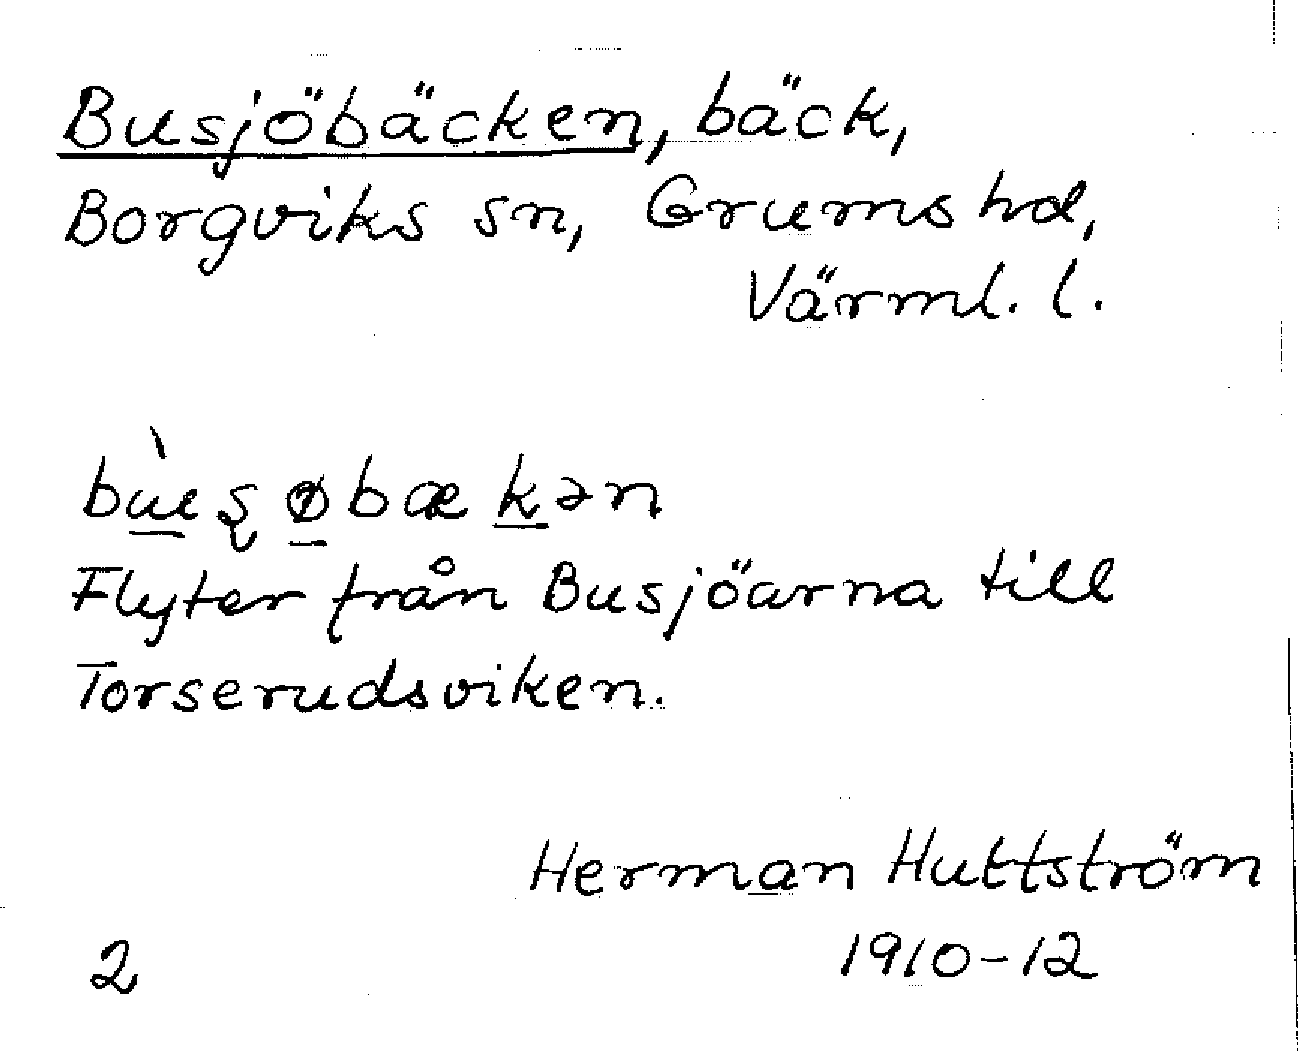 Busjöbäcken, bäck,
Borgviks sn, Grums hd,
Värml. l.
bùʂøbækən
Flyter från Busjöarna till
Torserudsviken.
Herman Huttström
1910-12
2